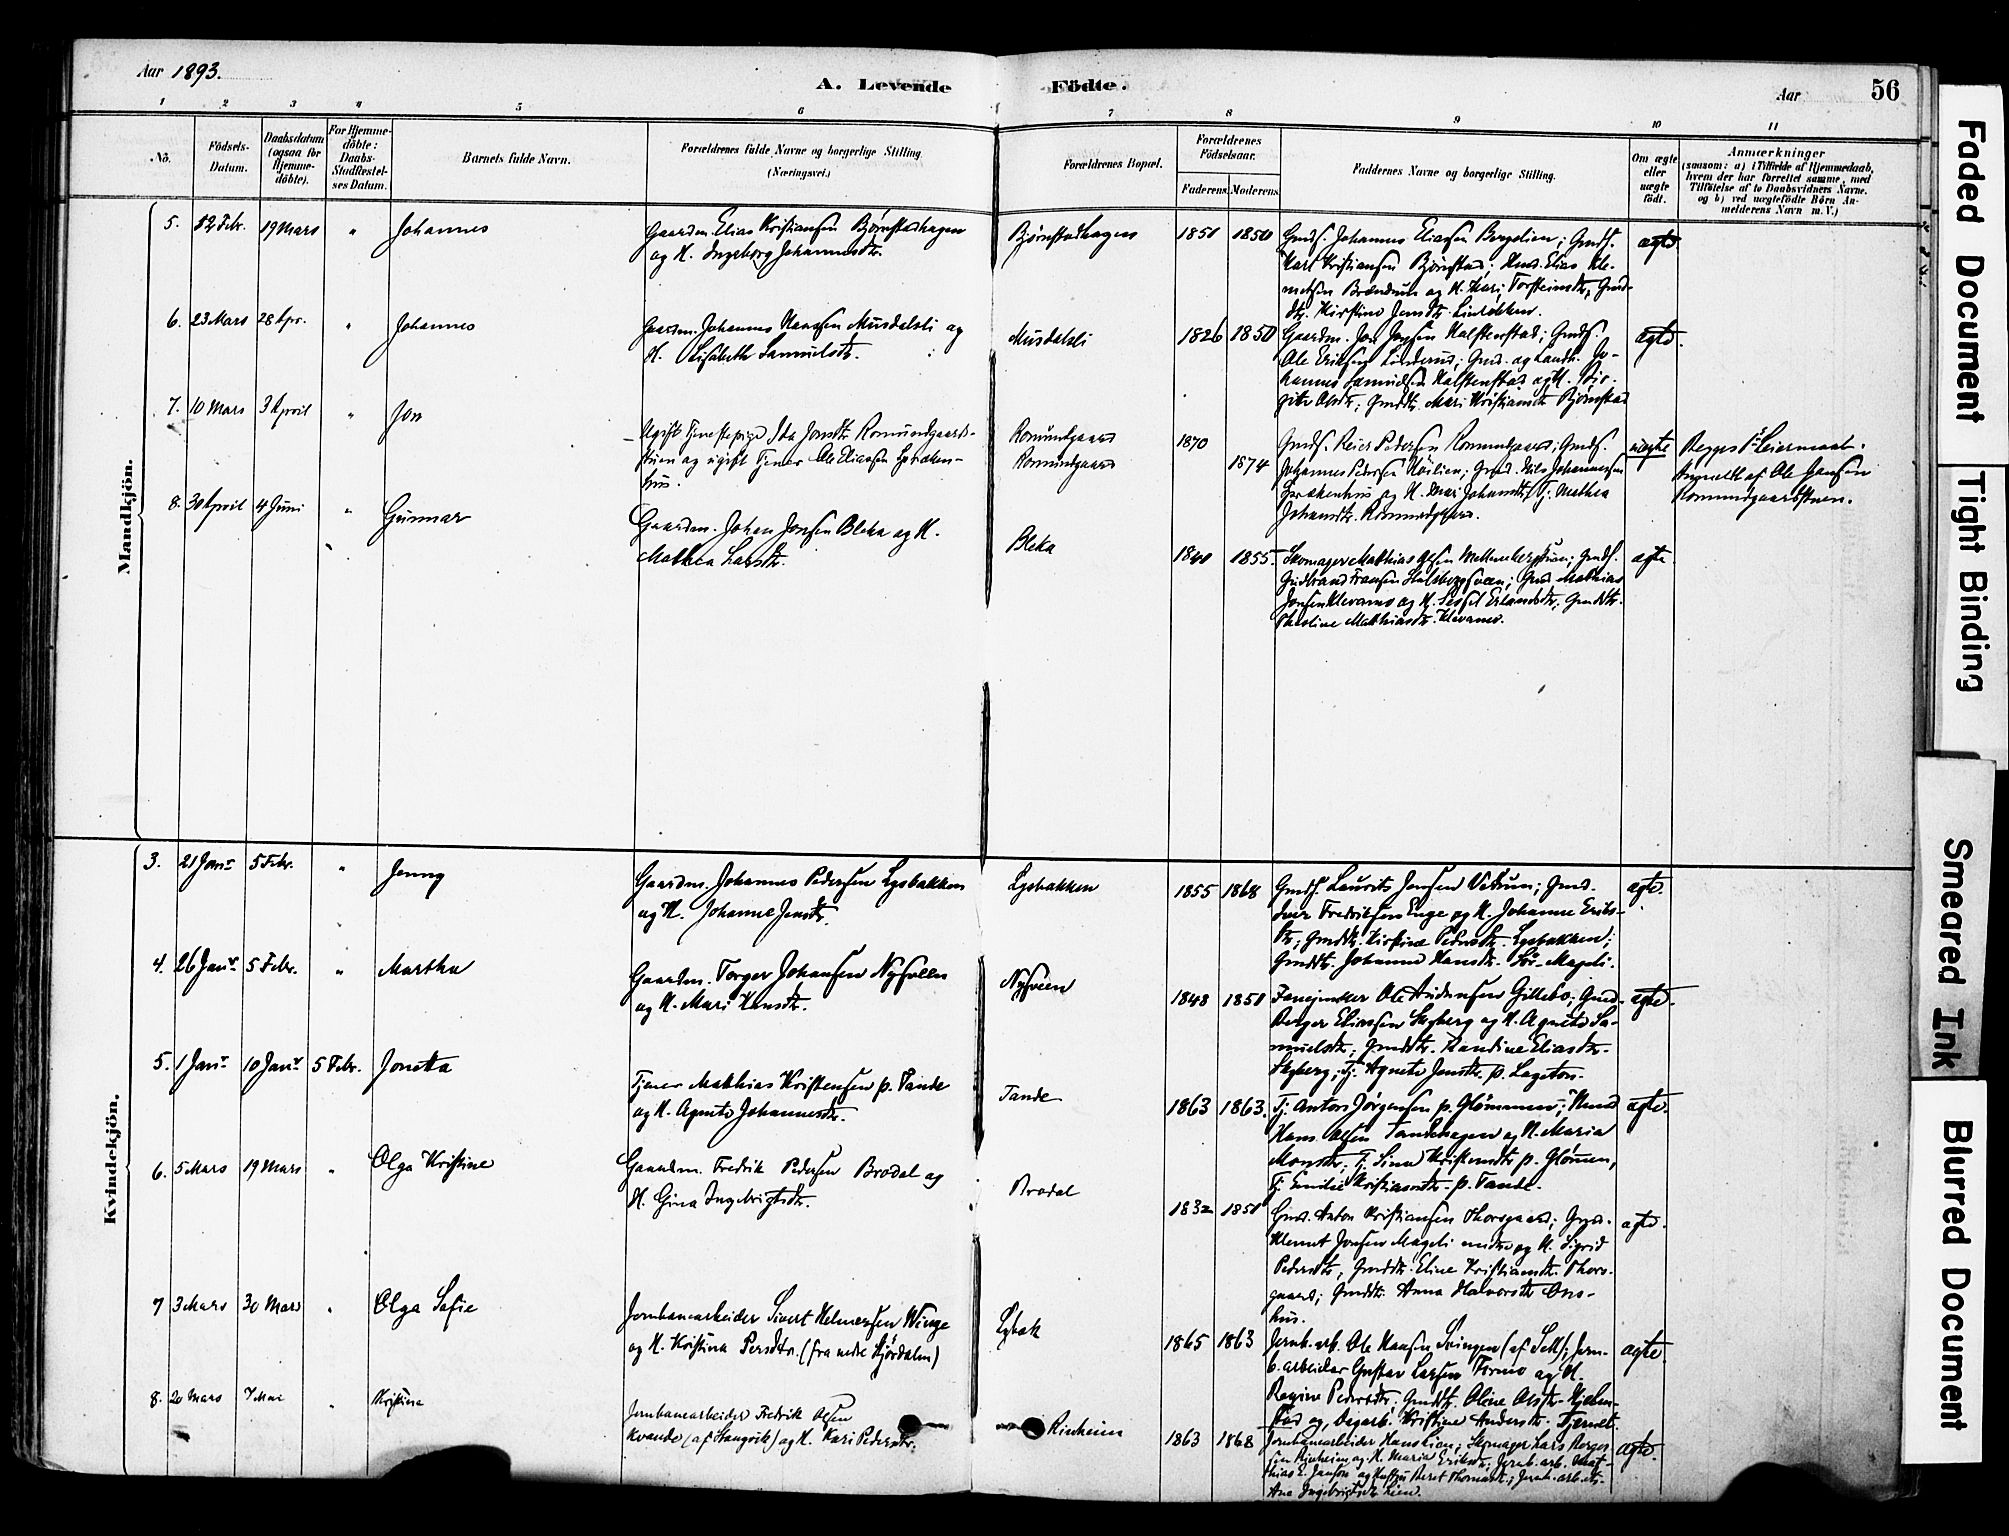 Aar 1893.
A. Levende Födte.
Aar
56
1 2 3 4 5 6 7 8 9 10 11
No.
Födsels-Datum.
Daabsdatum (ogsaa for Hjemme-döbte).
For Hjemme-döbte: Daabs-Stadfæstel-ses Datum.
Barnets fulde Navn.
Forældrenes fulde Navne og borgerlige Stilling. (Næringsvei.)
Forældrenes Bopæl.
Forældrenes Födselsaar.
Faderens. Moderens.
Faddernes Navne og borgerlige Stilling.
Om ægte eller uægte födt.
Anmærkninger
(saasom: a) i Tilfælde af Hjemmedaab,
hvem der har forrettet samme, med
Tilföielse af to Daabsvidners Navne.
og b) ved uægtefödte Börn An-
melderens Navn m. V.)
Mandkjön.
5. 12 Febr. 19 Mars " Johannes
Gaardm. Elias Kristiansen Bjørnstadhagen
og H. Ingeborg Johannesdtr.
Bjørnstadhagen
1851 1850
Gmds. Johannes Eliassen Bergelien; Gmds.
Karl Kristiansen Bjørnstad; Hmd. Elias Kle-
metsen Brændum og H. Mari Torsteinsdtr, Gmd-
dtr. Kirstine Jensdtr.
ægte
6. 23 Mars 28 Apr. " Johannes
Gaardm. Johannes Hanssen Musdalsli og
H. Lisabeth Samuelsdtr.
Musdalsli
1826 1850
Gaardm. Jon Jonsen Kalstenstad; Gmds.
Ole Eriksen Linderud; Gmd. og Landh. Jo-
hannes Samuelsen Kalstenstad og H. Bir-
gitte Olsdtr; Gmddtr. Mari Kristiansdtr Bjørnstad
ægte.
7. 10 Mars 3 April " Jon
Ugift Tjenestepige Ida Jonsdtr Romundgaards-
stuen og ugift Tjener Ole Eliassen Sprækken-
hus.
Romundgaard
Romundgaard
1870
1874
Gmds. Reier Pedersen Romundgaard; Gmds.
Johannes Pedersen Høilien; Gmd. Nils Johannessen
Sprækenhus og H. Mari Johansdtr, Tj. Mathea
Johansdtr. Romundgaard.
uægte
Begges 1ste Leiermaal.
Anmeldt af Ole Hansen
Romundgaardstuen.
8. 30 April 4 Juni " Gunnar
Gaardm. Johan Jonsen Bleka og H.
Mathea Larsdtr.
Bleka
1840 1855
Skomager Mathias Olsen Mellembergstuen; Gmds.
Gudbrand Fransen Stulsbergsveen; Gmd Mathias
Jonsen Klevamo og H. Sessel Erlandsdtr; Gmddtr.
Pauline Mathiasdtr. Klevamo.
ægte
Kvindekjön.
3. 21 Janr 5 Febr. " Jenny
Gaardm. Johannes Pedersen Lysbakken
og H. Johanne Jensdtr.
Lysbakken
1855 1868
Gmds. Laurits Jensen Vedum; Gmd.
Iver Fredriksen Enge og H. Johanne Eriks-
dtr; Gmddtr. Kirstine Pedersdtr. Lysbakken;
Gmddtr. Johanne Hansdtr. Sør-Mageli.
ægte.
4. 26 Janr. 5 Febr. " Martha
Gaardm. Torger Johansen Nysveen
og H. Mari Hansdtr.
Nysveen
1848 1851
Fanejunker Ole Audensen Gillebo; Gmd.
Berger Eliassen Skyberg og H. Agnete Sa-
muelsdtr; Gmddtr. Randine Eliasdtr.
Skyberg, Tj. Agnete Jensdtr. p. Lageton.
ægte.
5. 1 Janr 10 Janr 5 Febr. Jonetta
Tjener Mathias Kristensen p. Tande
og H. Agnete Johannesdtr.
Tande
1863 1863.
Tj. Anton Jørgensen p. Glømmen; Hmd
Hans Olsen Tandehagen og H. Maria
Monsdtr; Tj. Sina Kristensdtr p. Glømen,
Tj. Emilie Kristiansdtr. p. Tande.
ægte.
6. 5 Mars 19 Mars " Olga Kristine
Gaardm. Fredrik Pedersen Brodal og
H. Gina Ingebrigtsdtr.
Brodal
1832 1851
Gmd. Anton Kristiansen Thorsgaard; Gmd.
Klemet Jonsen Mageli nedre og H. Sigrid
Pedersdtr; Gmddtr. Eline Kristiansdtr. Thors-
gaard; Gmddtr. Anna Halvorsdtr Ons-
hus.
ægte.
7 3 Mars 30 Mars " Olga Sofie
Jernbanearbeider Sivert Helmersen Winge
og H. Kristina Persdtr. (fra nedre Stjørdalen)
Lybak
1865 1863
Jernb. arb. Ole Hansen Svingen (af Sell); Jern-
b. arbeider Gustav Larsen Formo og H.
Regine Pedersdtr; Gmddtr. Oline Olsdtr. Hjelm-
stad og Dagarb. Kristine Andersdtr. Tjernet.
ægte.
8. 20 Mars 7 Mai " Kristine
Jernbanearbeider Fredrik Olsen
Kvande (af Stangvik) og H. Kari Pedersdtr.
Rinheim
1863 1868
Jernbanearbeider Hans Lien; Skomager Lars Borger-
sen Rinheim og H. Maria Eriksdtr; Jernb. arb. Mat-
thias E. Jansen og Hustru Beret Thomasdtr; Jernb. arb. dtr.
Ana Ingebrigtsdtr Lien.
ægte.
Faded Document
Tight Binding
Smeared Ink
Blurred Document